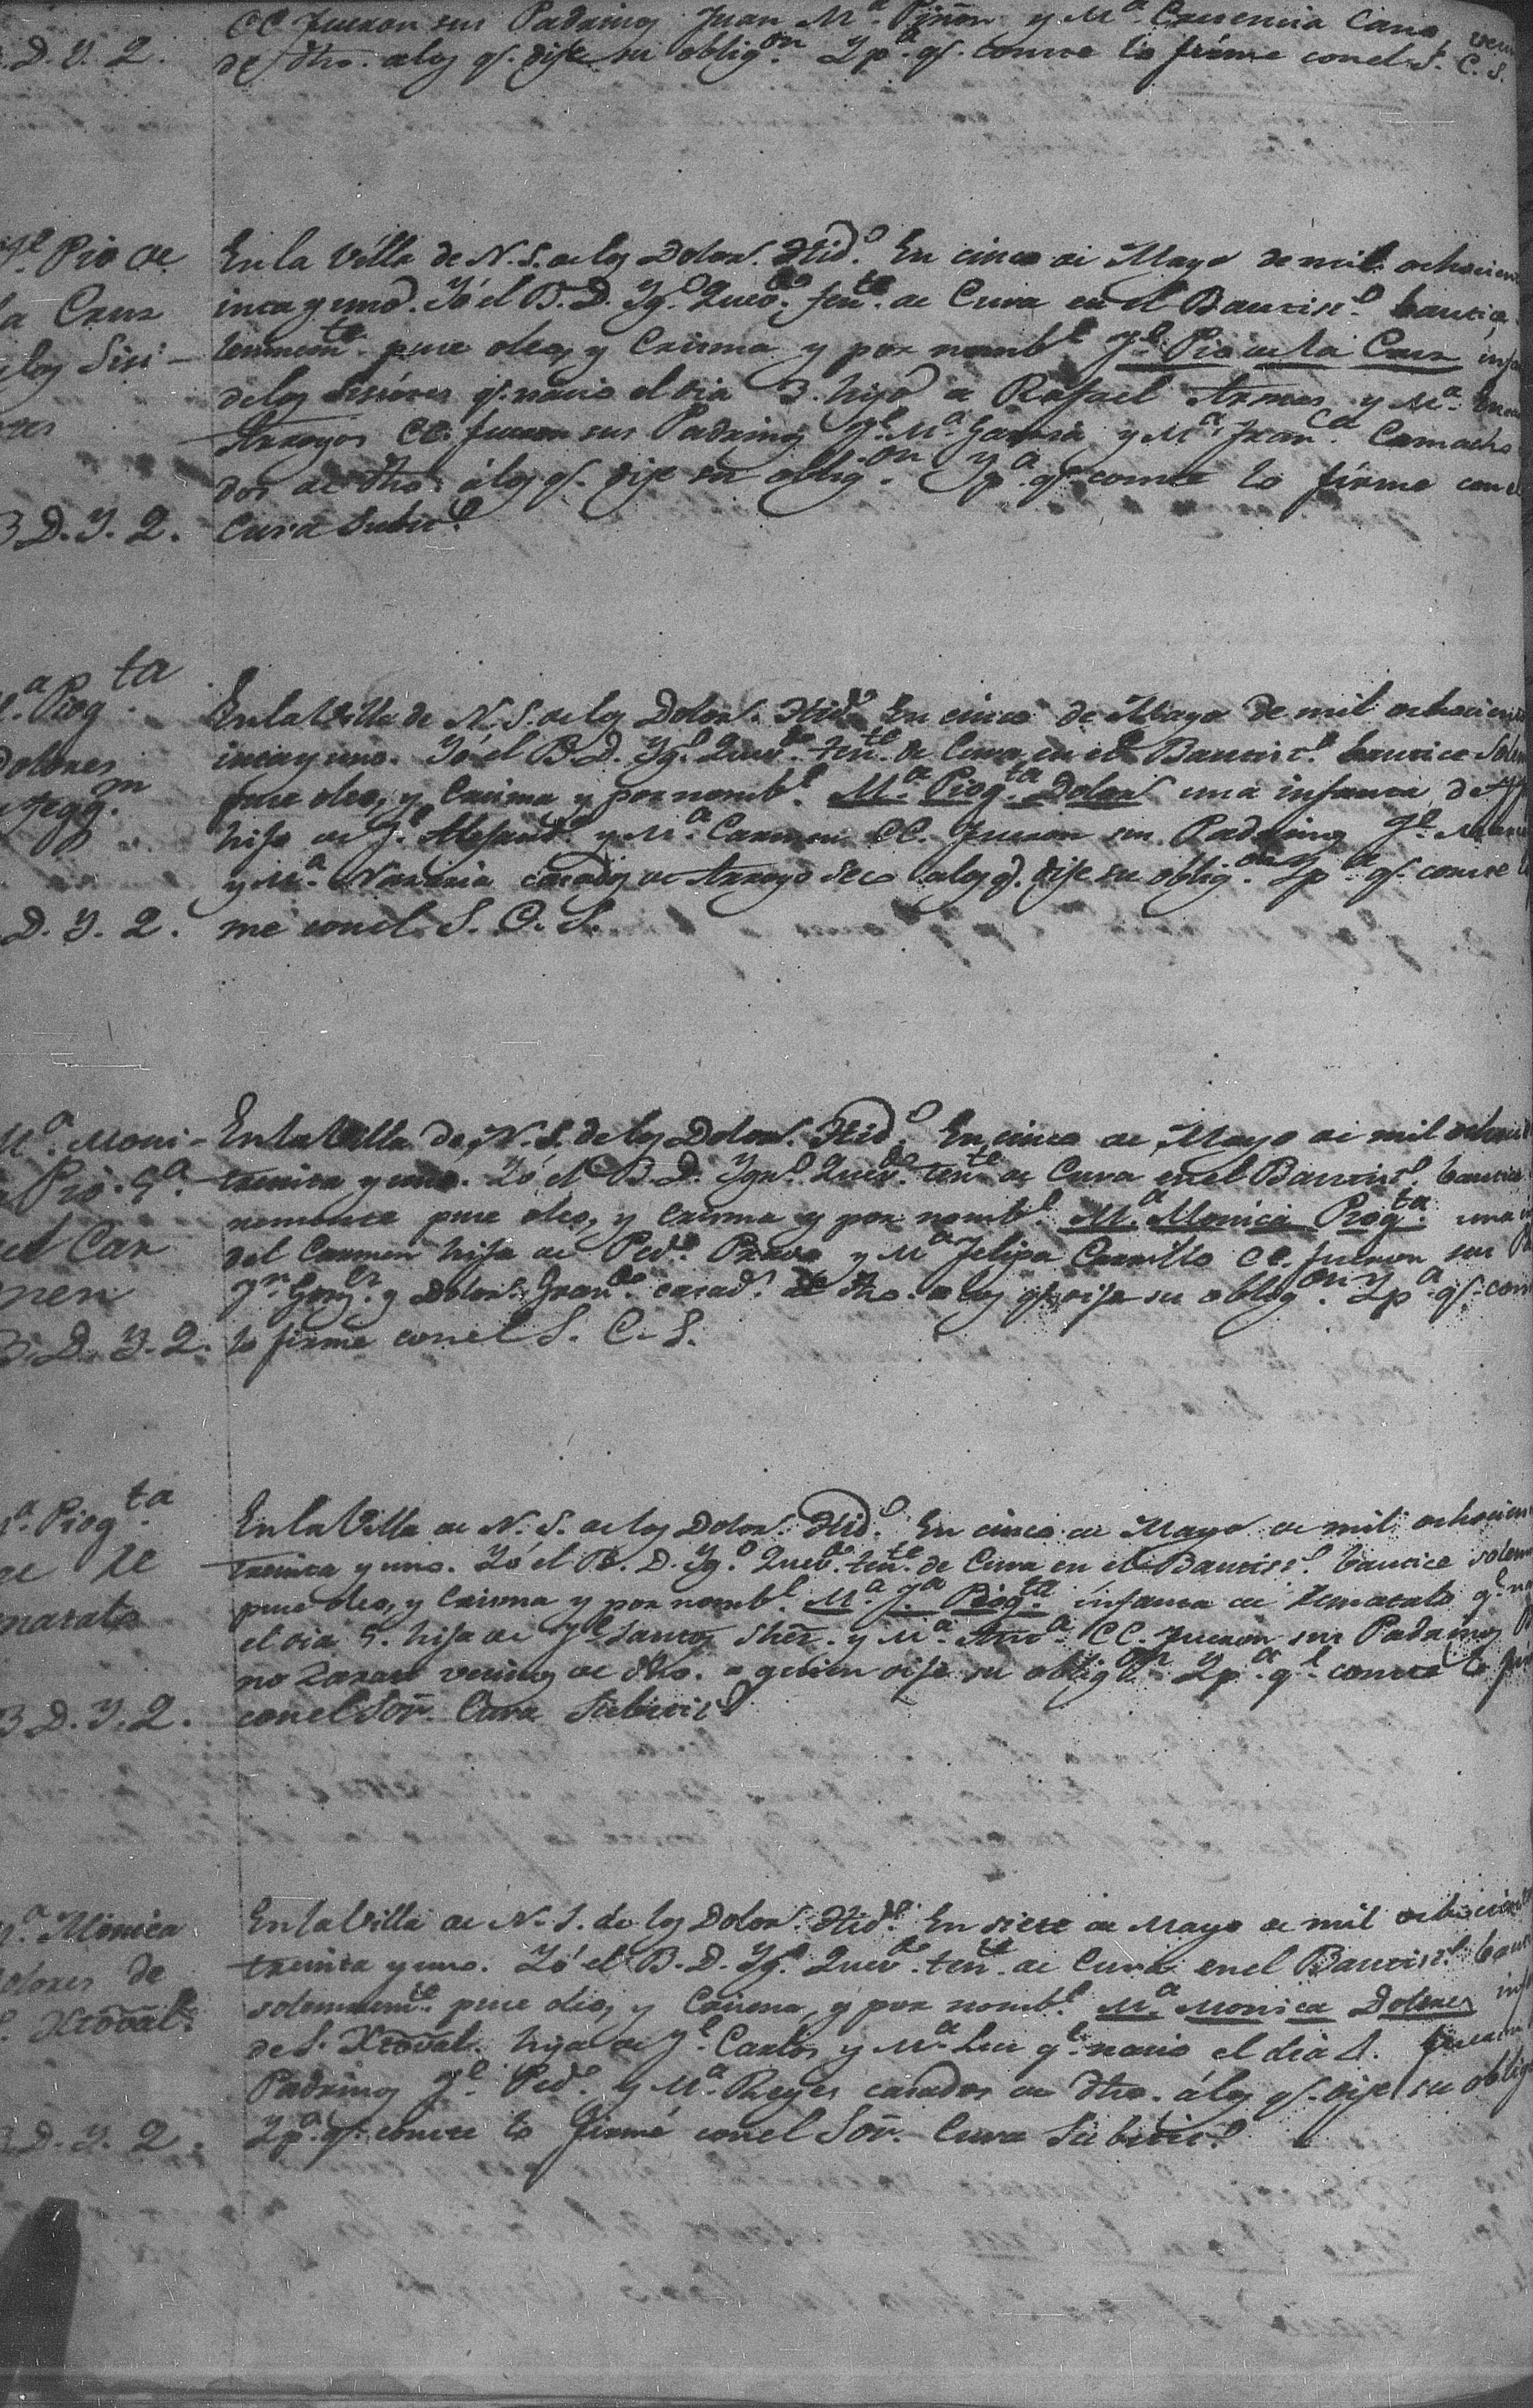 CC fueron sus Padrinos Juan Mª Piñon y Mª Cresencia Cano,
D. Y. Q.
de dho. alos qe. dije su obligon. Ypª qe. conste lo firmé conel S. C. S.
Je. Pio de
la Cruz
delos Sisi-
ores
B D. Y. Q.
Enla Villa de N. S. delos Dolors. Hido. En cinco de Mayo de mil ochocien
inta y uno. Yó el B. D. Ygo. Quevdo. tente. de Cura en el Bautiso. bautice
lemnemte. puse oleo, y Crisma y por nombe. Je. Pio de la Cruz
delos Sisiores qe. nacio el dia 3. hijo de Rafael Arroyo y Mª
Arroyos CC. fueron sus Padrinos Je. Mª Garcia y Mª Franca. Camacho
dos de dho. álos qe. dije su obligon. Ypª qe. conste lo firme con el
Cura Substo.
Mª. Piogta.
Dolores
B D. Y. Q.
Enla Villa de N. S. delos Dolors. Hido. En cinco de Mayo de mil ochocien
inta y uno. Yó el B. D. Ygo. Quevdo. tente. de Cura en el Bautiso. bautice Solem
puse oleo, y Crisma y por nombe. Mª. Piogta. Dolors una infanta de
hija de Je. Alejando y Mª Carmen CC. fueron sus Padrinos Je.
y Mª Nasaria casados de Arroyo Seco alos qe. dije su obligon. Ypª qe. conste
me conel S. C. S.
Mª. Moni-
Pio. Gª.
del Car
men
B. D. Y. Q.
Enla Villa de N. S. de los Dolors. Hido. En cinco de Mayo de mil ochocien
treinta y uno. Yó el B. D. Ygno. Quevdo. tente. de Cura enel Bautiso. bautice
nemente puse oleo, y Crisma y por nombe. Mª. Monica Piogta. una
del Carmen hija de Pedo. Prado y Mª Felipa Carrillo CC. fueron sus
Jn. Gonzz. y Dolors. Grando. casads. de dho. alos qe. dije su obligon. Ypª qe. cons
lo firmé conel S. C. S.
Mª. Piogta.
de Te
marato
B D. Y. Q.
Enla Villa de N. S. delos Dolors. Hido. En cinco de Mayo de mil ochocien
treinta y uno. Yó el B. D. Ygo. Quevdo. tente. de Cura en el Bautiso. bautice solem
puse oleo, y Crisma y por nombe. Mª. Jª Piogta. infanta de Temarato qe.
el dia 5. hija de Je. Santos Shez. y Mª Antoª CC. fueron sus Padrinos
no Zarasu vecinos de dho. a quien dije su obligon. Ypª qe. conste lo
conel Sor. Cura Substo.
Mª. Monica
Dolores de
S. Xtoval.
B. D. Y. Q.
Enla Villa de N. S. de los Dolors. Hido. En siete de Mayo de mil ochocien
treinta y uno. Yó el B. D. Ygo. Quevdo. tente. de Cura enel Bautiso. bau
solemnemte. puse oleo, y Crisma, y por nombe. Mª. Monica Dolores inf
de S. Xtoval. hija de Je. Carlos y Mª Luz qe. nacio el dia 4. fueron
Padrinos Je. Pedo. y Mª Reyes casados de dho. álos qe. dije su oblig
Ypª. qe. conste lo firmé conel Sor. Cura Substo.